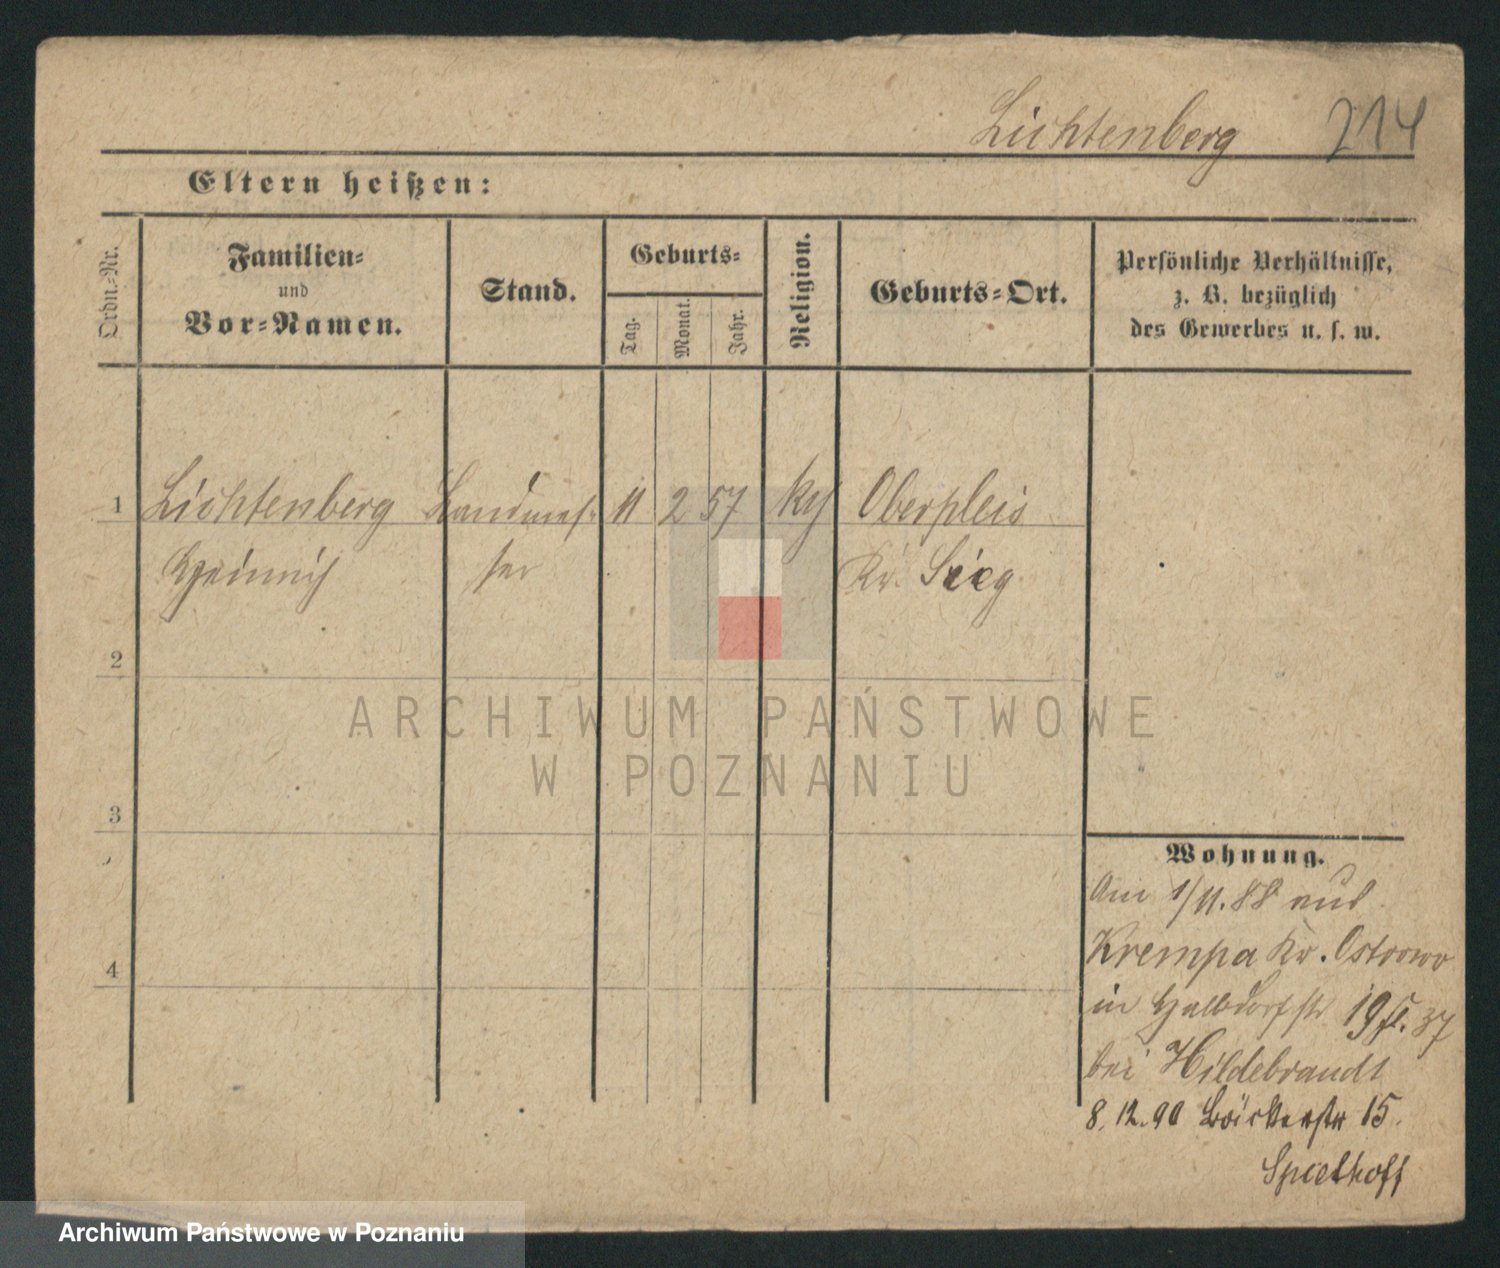 Lichtenberg 214
Eltern heißen:
Ordn.-Nr.
Familien-
und
Vor-Namen.
Stand.
Geburts-
Tag.
Monat.
Jahr.
Religion.
Geburts-Ort.
Persönliche Verhältnisse,
z. B. bezüglich
des Gewerbes u. s. w.
1 Lichtenberg Landmes- 11 2 57 Oberpleis
Heinrich ser Kr. Sieg
2
3
4
ARCHIWUM PAŃSTWOWE
W POZNANIU
Wohnung.
Am 1/11.88 aus
Krempa Kr. Ostrowo
in Halbdorfstr 19 37
bei Hildebrandt
8.12.90 Bäckerstr 15.
Spielhoff
Archiwum Państwowe w Poznaniu